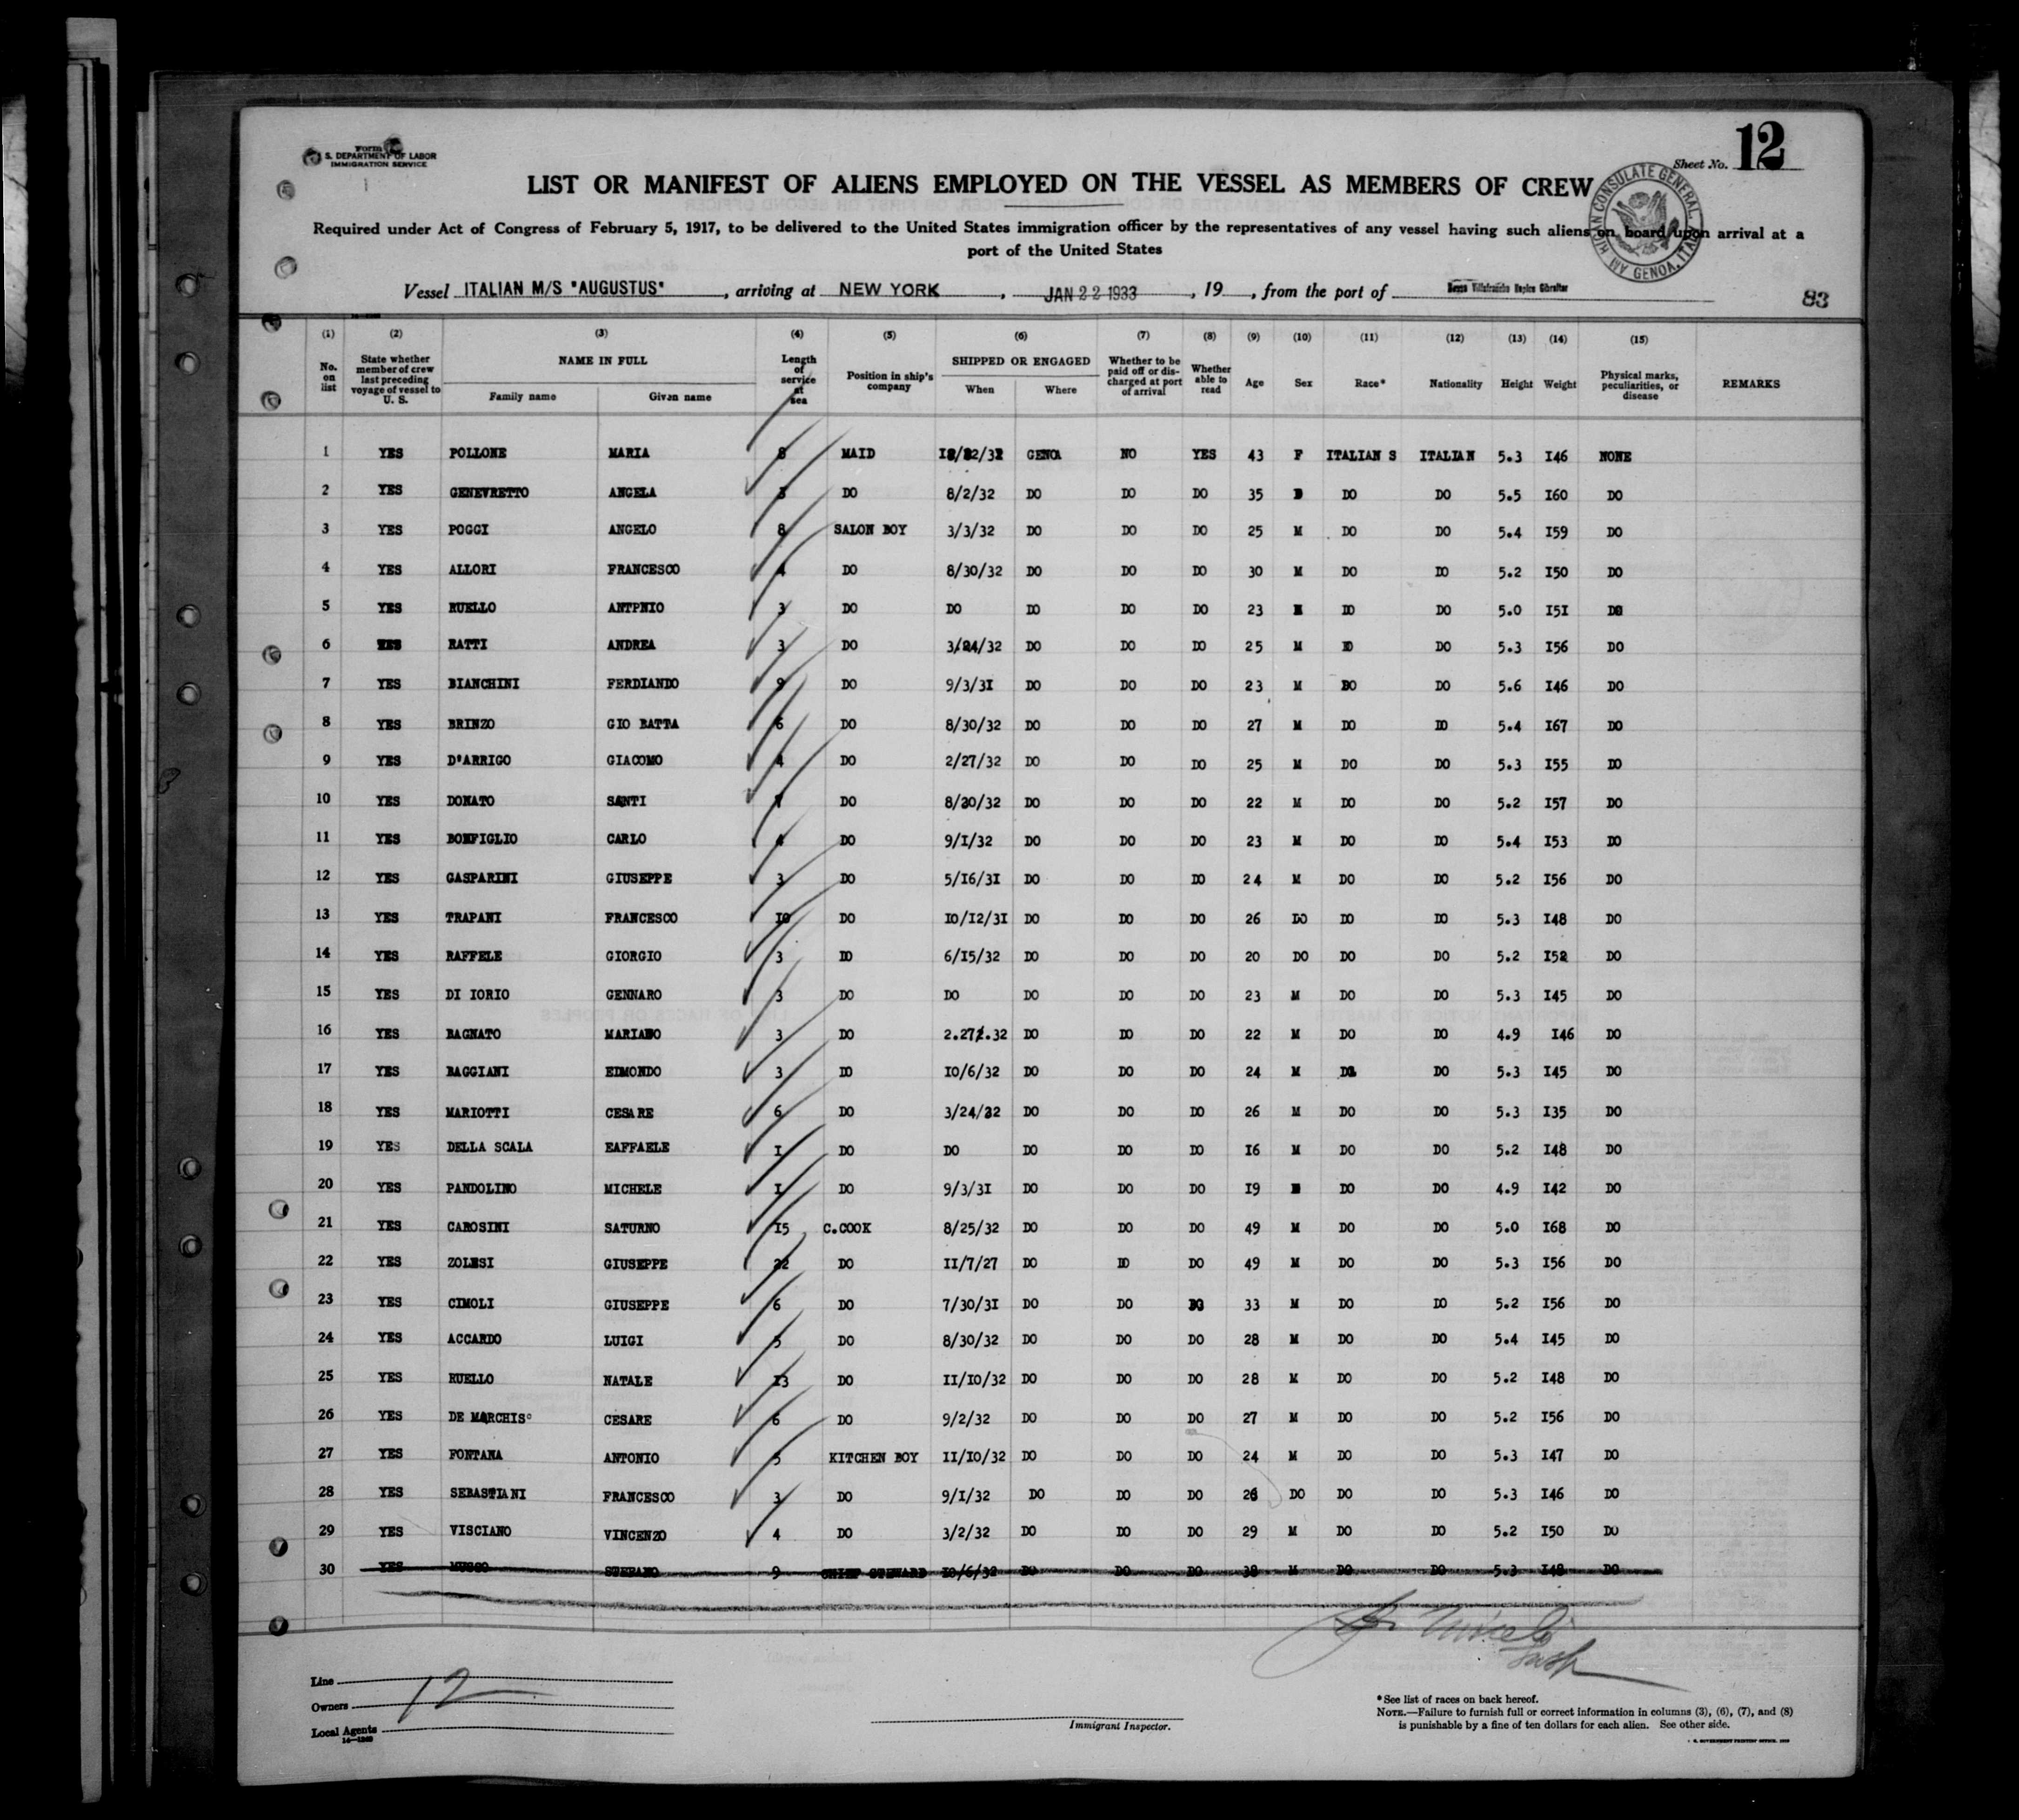 Form
S. DEPARTMENT OF LABOR
IMMIGRATION SERVICE
Sheet No. 12
AMERICAN CONSULATE GENERAL GENOA, ITALY
LIST OR MANIFEST OF ALIENS EMPLOYED ON THE VESSEL AS MEMBERS OF CREW
Required under Act of Congress of February 5, 1917, to be delivered to the United States immigration officer by the representatives of any vessel having such aliens on board upon arrival at a
port of the United States
Vessel ITALIAN M/S "AUGUSTUS", arriving at NEW YORK, JAN 22 1933, 19, from the port of Genoa Villefranche Naples Gibraltar
83
(1) (2) (3) (4) (5) (6) (7) (8) (9) (10) (11) (12) (13) (14) (15)
No. on list State whether member of crew last preceding voyage of vessel to U. S. NAME IN FULL Family name Given name Length of service at sea Position in ship's company SHIPPED OR ENGAGED When Where Whether to be paid off or discharged at port of arrival Whether able to read Age Sex Race* Nationality Height Weight Physical marks, peculiarities, or disease REMARKS
1 YES POLLONE MARIA 8 MAID GENOA NO YES 43 F ITALIAN S ITALIAN 5.3 I46 NONE
2 YES GENEVRETTO ANGELA 3 DO 8/2/32 DO DO DO 35 DO DO 5.5 I60 DO
3 YES POGGI ANGELO 8 SALON BOY 3/3/32 DO DO DO 25 M DO DO 5.4 I59 DO
4 YES ALLORI FRANCESCO 4 DO 8/30/32 DO DO DO 30 M DO DO 5.2 I50 DO
5 YES RUELLO ANTPNIO 3 DO DO DO DO DO 23 M DO DO 5.0 I5I DO
6 YES RATTI ANDREA 3 DO 3/24/32 DO DO DO 25 M DO DO 5.3 I56 DO
7 YES BIANCHINI FERDIANDO 9 DO 9/3/3I DO DO DO 23 M DO DO 5.6 I46 DO
8 YES BRINZO GIO BATTA 6 DO 8/30/32 DO DO DO 27 M DO DO 5.4 I67 DO
9 YES D'ARRIGO GIACOMO 4 DO 2/27/32 DO DO DO 25 M DO DO 5.3 I55 DO
10 YES DONATO SANTI DO 8/30/32 DO DO DO 22 M DO DO 5.2 I57 DO
11 YES BONFIGLIO CARLO 4 DO 9/I/32 DO DO DO 23 M DO DO 5.4 I53 DO
12 YES GASPARINI GIUSEPPE 3 DO 5/I6/3I DO DO DO 24 M DO DO 5.2 I56 DO
13 YES TRAPANI FRANCESCO I0 DO I0/I2/3I DO DO DO 26 DO DO DO 5.3 I48 DO
14 YES RAFFELE GIORGIO 3 DO 6/I5/32 DO DO DO 20 DO DO DO 5.2 I52 DO
15 YES DI IORIO GENNARO 3 DO DO DO DO DO 23 M DO DO 5.3 I45 DO
16 YES BAGNATO MARIANO 3 DO 2.27.32 DO DO DO 22 M DO DO 4.9 I46 DO
17 YES BAGGIANI EDMONDO 3 DO I0/6/32 DO DO DO 24 M DO DO 5.3 I45 DO
18 YES MARIOTTI CESARE 6 DO 3/24/32 DO DO DO 26 M DO DO 5.3 I35 DO
19 YES DELLA SCALA EAFFAELE I DO DO DO DO DO I6 M DO DO 5.2 I48 DO
20 YES PANDOLINO MICHELE I DO 9/3/3I DO DO DO I9 M DO DO 4.9 I42 DO
21 YES CAROSINI SATURNO I5 C.COOK 8/25/32 DO DO DO 49 M DO DO 5.0 I68 DO
22 YES ZOLESI GIUSEPPE 22 DO II/7/27 DO DO DO 49 M DO DO 5.3 I56 DO
23 YES CIMOLI GIUSEPPE 6 DO 7/30/3I DO DO DO 33 M DO DO 5.2 I56 DO
24 YES ACCARDO LUIGI 5 DO 8/30/32 DO DO DO 28 M DO DO 5.4 I45 DO
25 YES RUELLO NATALE I3 DO II/I0/32 DO DO DO 28 M DO DO 5.2 I48 DO
26 YES DE MARCHISO CESARE 6 DO 9/2/32 DO DO DO 27 M DO DO 5.2 I56 DO
27 YES FONTANA ANTONIO 5 KITCHEN BOY II/I0/32 DO DO DO 24 M DO DO 5.3 I47 DO
28 YES SEBASTIANI FRANCESCO 3 DO 9/I/32 DO DO DO 26 DO DO DO 5.3 I46 DO
29 YES VISCIANO VINCENZO 4 DO 3/2/32 DO DO DO 29 M DO DO 5.2 I50 DO
30 YES MUSSO STEFANO 9 CHIEF STEWARD I0/6/32 DO DO DO 38 M DO DO 5.3 I48 DO
Line
Owners 12
Local Agents
14—1240
Immigrant Inspector.
*See list of races on back hereof.
NOTE.—Failure to furnish full or correct information in columns (3), (6), (7), and (8)
is punishable by a fine of ten dollars for each alien. See other side.